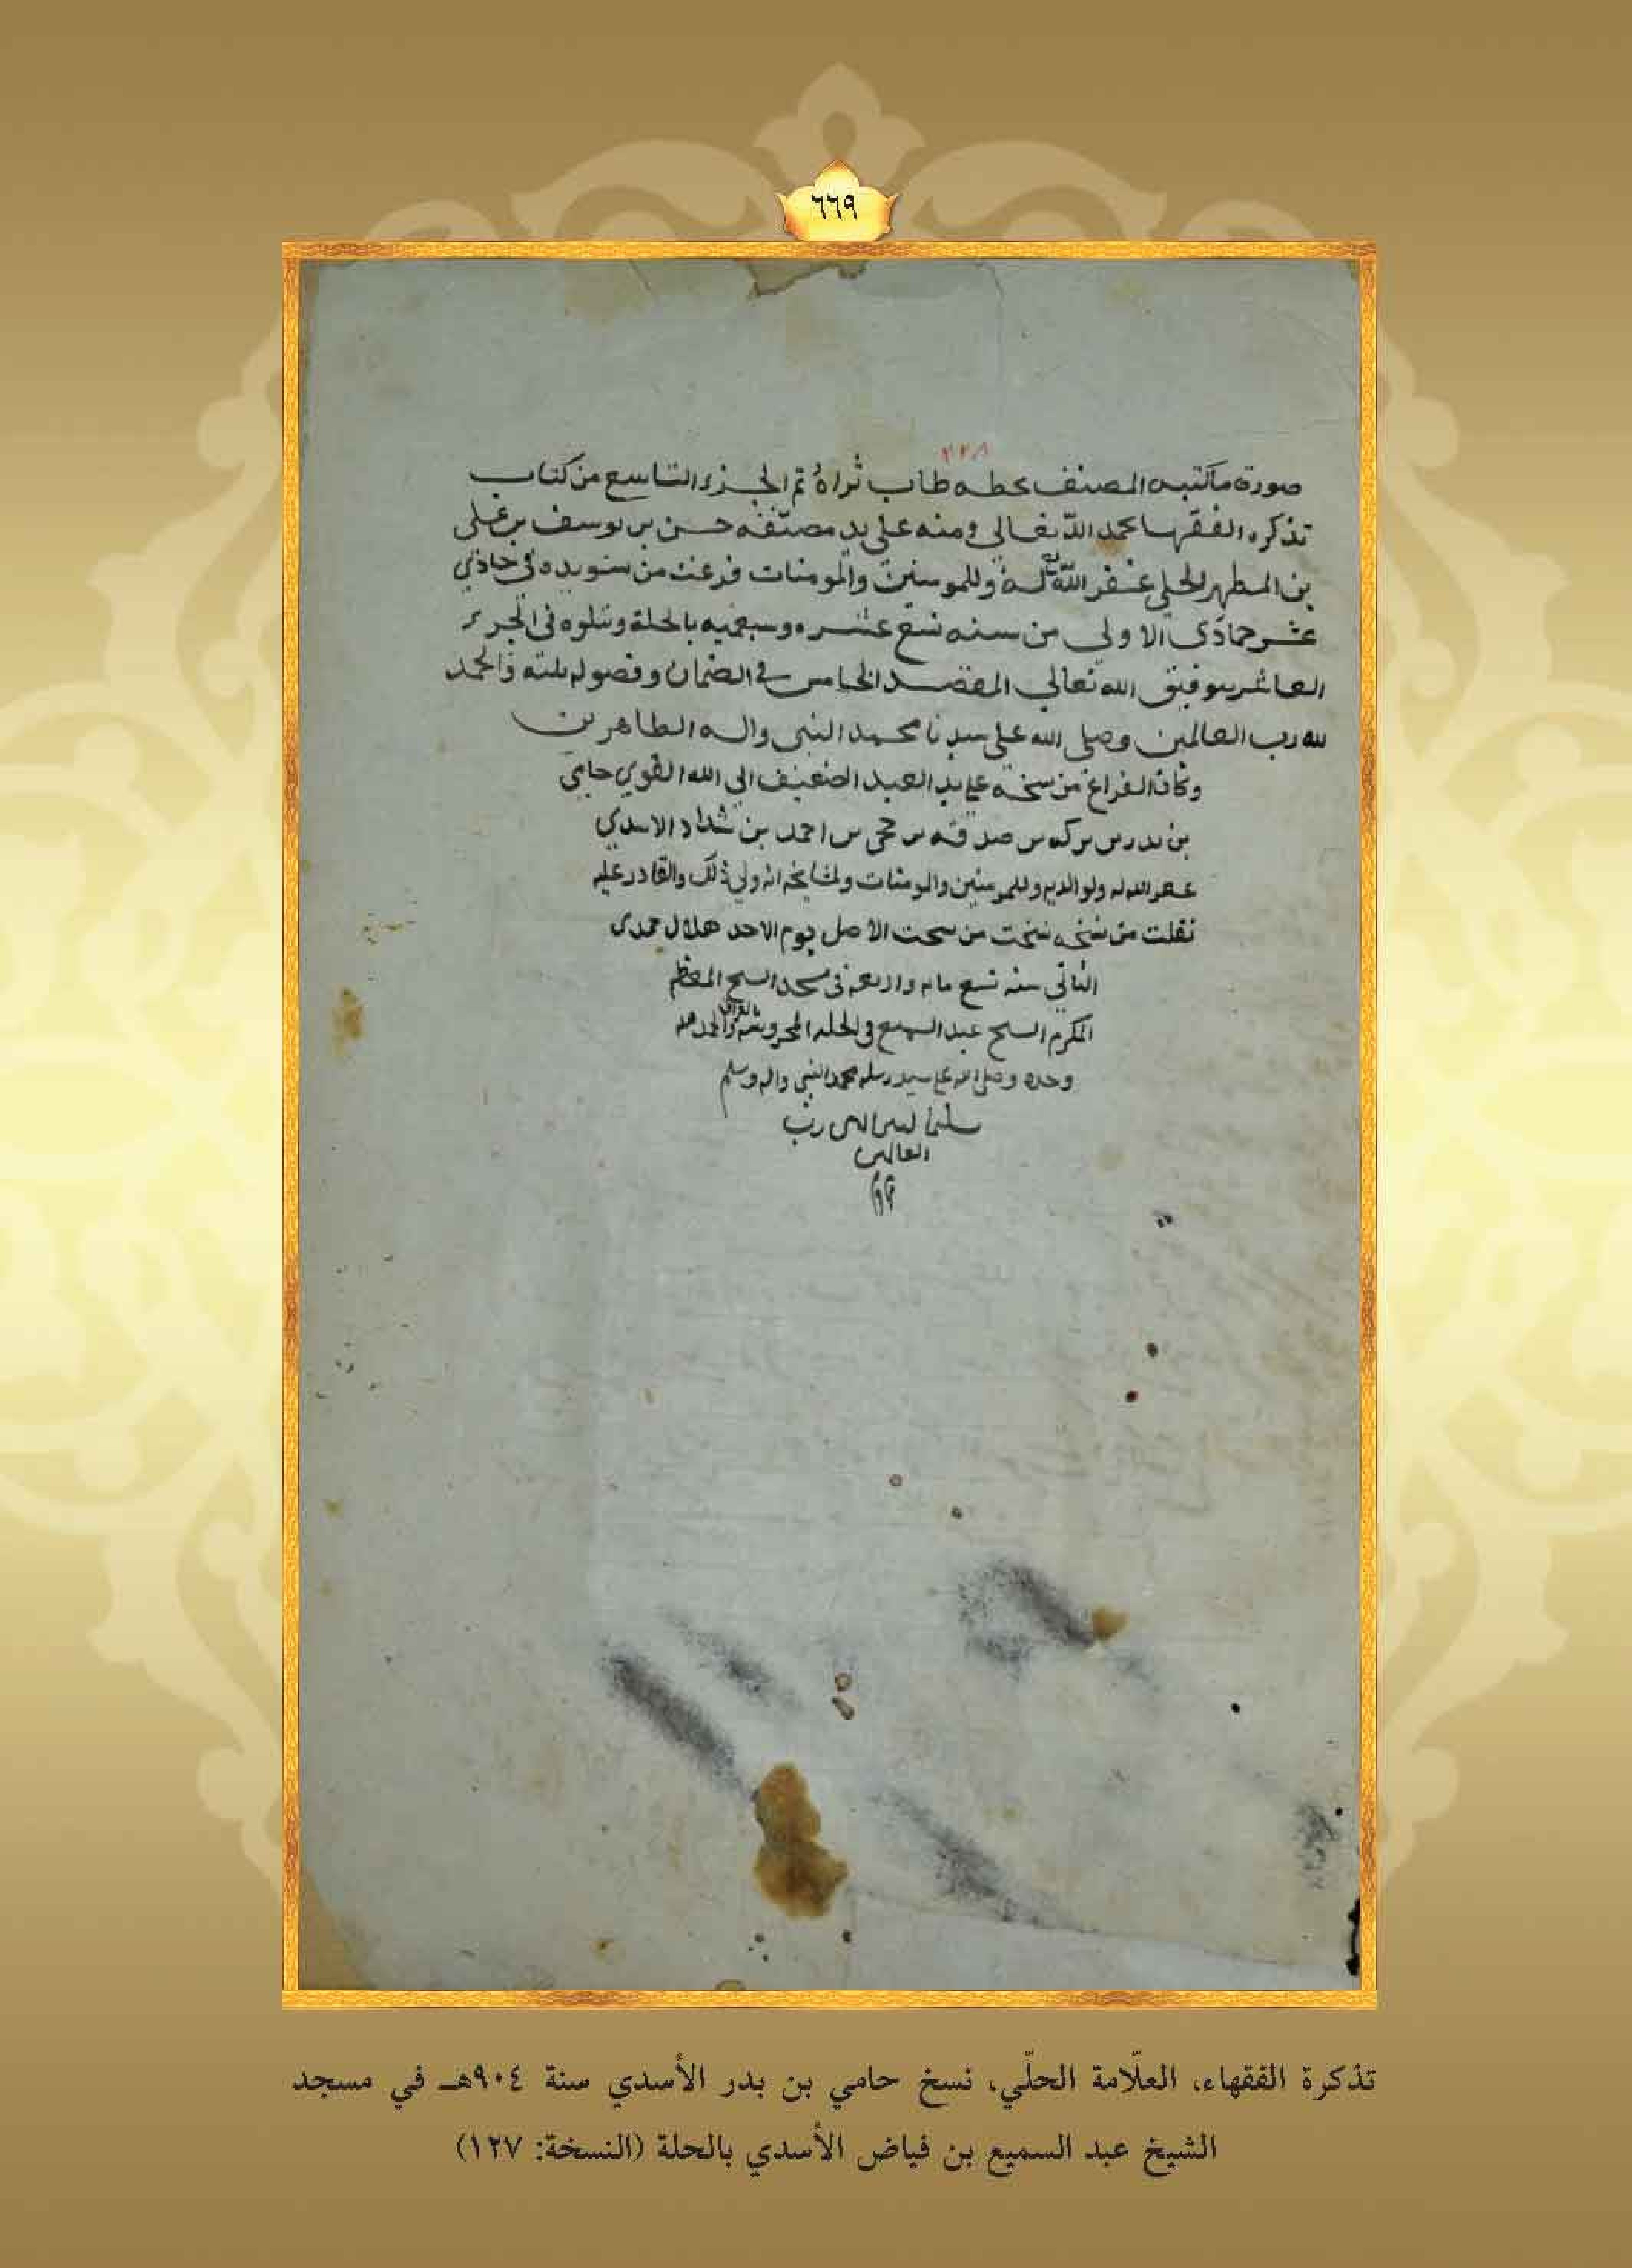 ٦٦٩
٢٢٨
صورة ما كتبه المصنف بخطه طاب ثراهُ تم الجزء التاسع من كتاب
تذكره الفقها بحمد اللّه تعالى ومنه على يد مصنّفه حسن بن يوسف بن علي
بن المطهر الحلي غفر اللّه له وللمومنين والمومنات فرغت من تسويده في حادي
عشر جمادى الاولى من سنه تسع عشره وسبعميه بالحلة ويتلوه في الجزء
العاشر بتوفيق الله تعالى المقصد الخامس في الضمان وفصوله ثلثه والحمد
لله رب العالمين وصلى الله على سيدنا محمد النبي واله الطاهرين
وكان الفراغ من نسخه على يد العبد الضعيف الى الله القوي حامي
بن بدر بن بركه بن صدقه بن حجي بن احمد بن شداد الاسدي
غفر الله له ولوالديه وللمومنين والمومنات ولمشايخه انه ولي ذلك والقادر عليه
نقلت من نسخه نسخت من نسخت الاصل يوم الاحد هلال جمدى
الثاني سنه تسع مايه واربعه في مسجد الشيخ المعظم
المكرم الشيخ عبد السميع في الحله المحروسه بالعراق والحمد لله
وحده وصلى الله على سيد رسله محمد النبي واله وسلم
تسليما رب
العالمين
تذكرة الفقهاء، العلّامة الحلّي، نسخ حامي بن بدر الأسدي سنة ٩٠٤هـ في مسجد
الشيخ عبد السميع بن فياض الأسدي بالحلة (النسخة: ١٢٧)